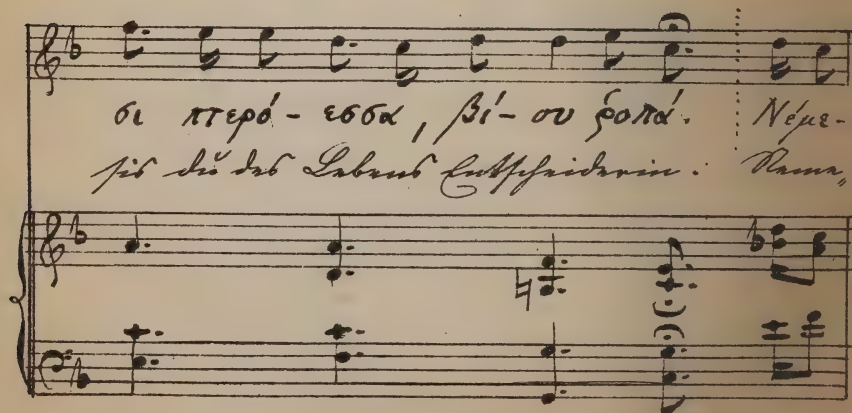 σι πτερό - εσσα, βί - ου ῥοπά. Νέμε-
sis du des Lebens Entscheiderin. Neme„